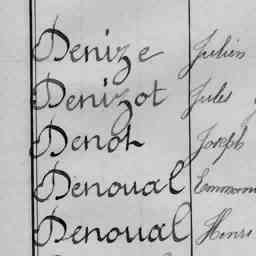 Denize Julien
Denizot Jules
Denot Joseph
Denoual
Denoual Henri